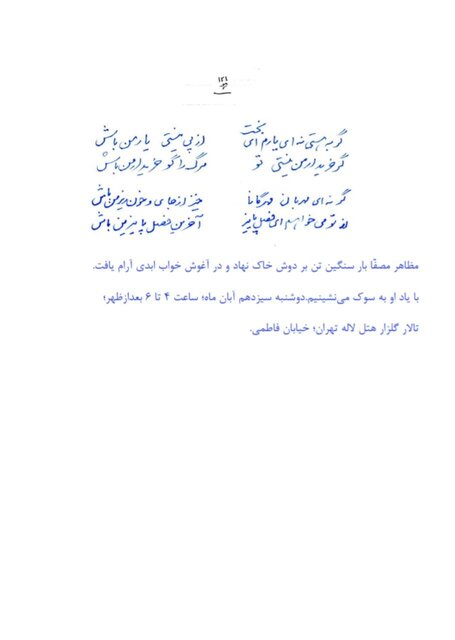 ۱۲۱
گر به هستی نه ای یارم ای بخت از پی نیستی یار من باش
گر خریدار من نیستی تو مرگ را گو خریدار من باش
گر نه ای مهربان مهرگانا خیز از جای و خونریز من باش
از تو می خواهم ای فصل پاییز آخرین فصل پاییز من باش
مظاهر مصفّا بار سنگین تن بر دوش خاک نهاد و در آغوش خواب ابدی آرام یافت.
با یاد او به سوک می‌نشینیم.دوشنبه سیزدهم آبان ماه؛ ساعت ۴ تا ۶ بعدازظهر؛
تالار گلزار هتل لاله تهران؛ خیابان فاطمی.